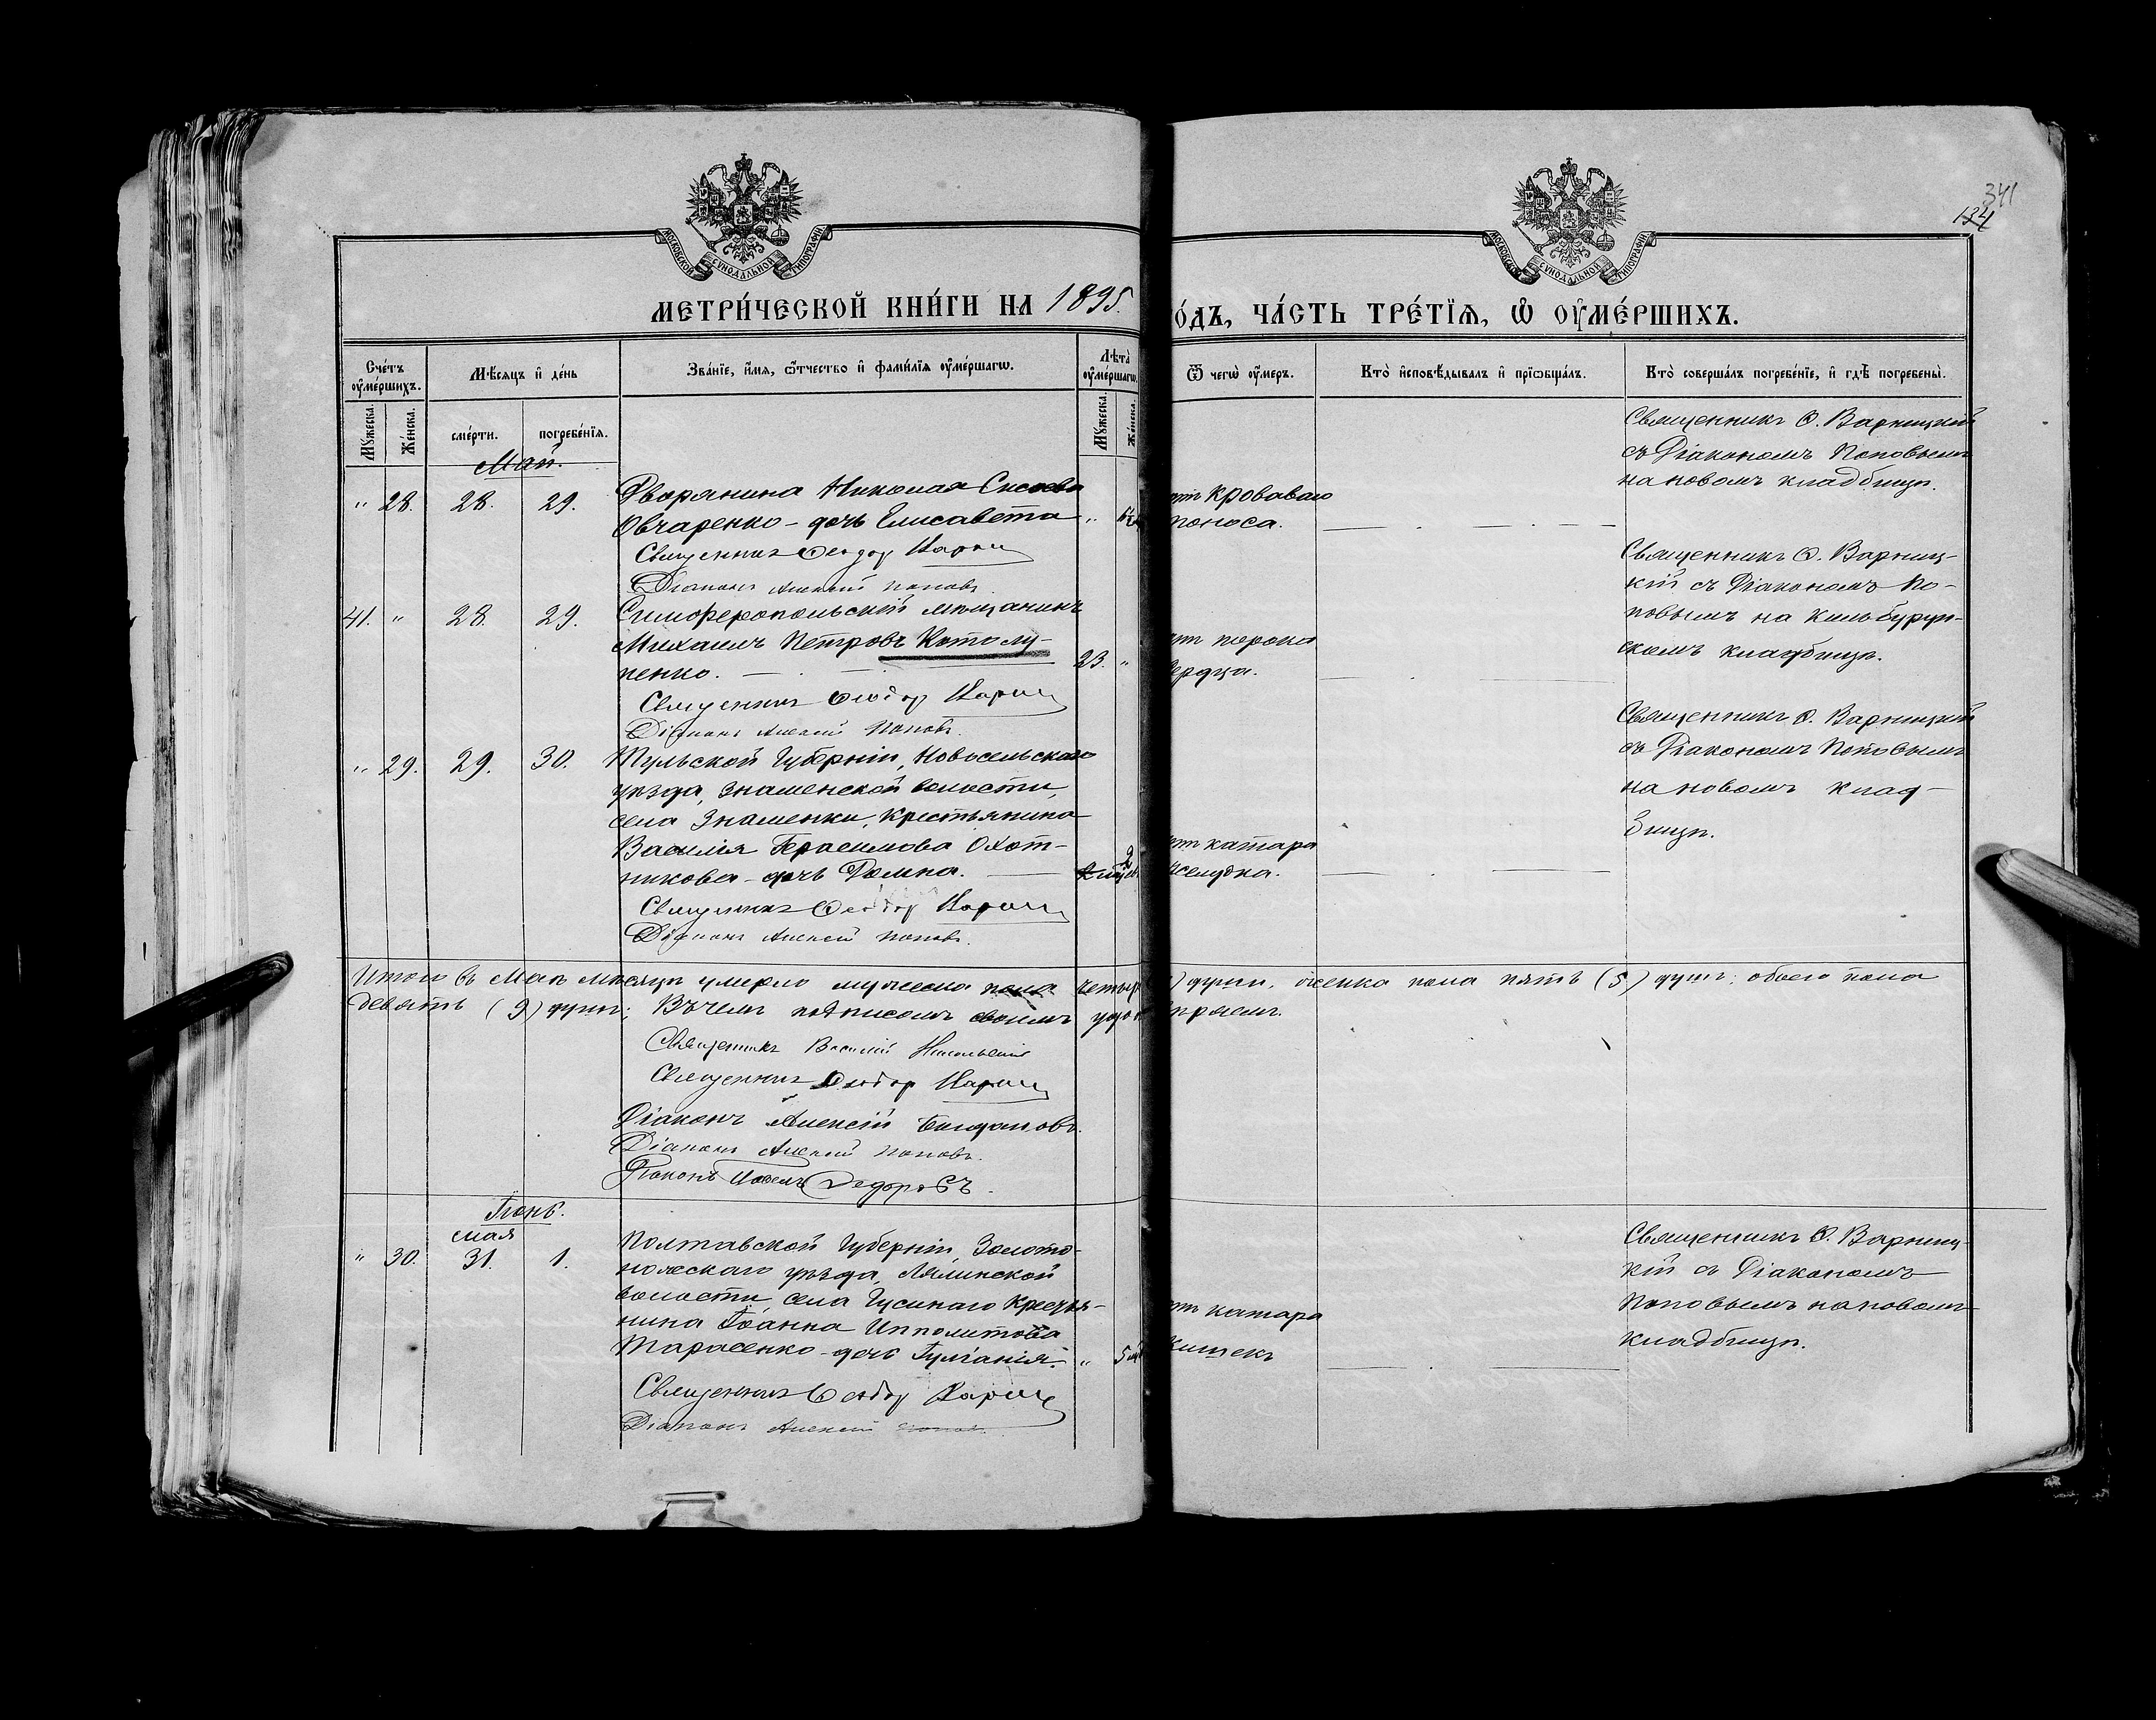 341
124
МОСКОВСКОЙ СУНОДАЛЬНОЙ ТИПОГРАФІИ
МОСКОВСКОЙ СУНОДАЛЬНОЙ ТИПОГРАФІИ
МЕТРИ́ЧЕСКОЙ КНИ́ГИ НА 1895.
О́ДЪ, ЧА́СТЬ ТРЕ́ТІѦ, Ѡ҆ ОУ҆МЕ́РШИХЪ.
Сче́тъ оу҆ме́ршихъ.
Мѣ́сяцъ и҆ де́нь
Зва́нїе, и҆́мя, ѻ҆́тчество и҆ фами́лїя оу҆ме́ршагѡ.
Лѣта̀ оу҆ме́ршагѡ.
Ѿ чегѡ̀ оу҆́меръ.
Кто̀ и҆сповѣ́дывалъ и҆ прїѡбща́лъ.
Кто̀ соверша́лъ погребе́нїе, и҆ гдѣ̀ погребены̀.
Му́жеска.
Же́нска.
сме́рти.
погребе́нїя.
Му́жеска.
Же́нска.
Май.
" 28. 28. 29.
Дворянина Николая Сисоева
Овчаренко - дочь Елисавета
Священникъ Ѳеодоръ
Діаконъ Алексій Поповъ.
отъ кроваваго
поноса.
Священникъ Ѳ. Варницкій
съ Діакономъ Поповымъ
на новомъ кладбищѣ.
41. " 28. 29.
Симферопольскій мѣщанинъ
Михаилъ Петровъ Котолу-
пенко.
23. "
Священникъ Ѳеодоръ
Діаконъ Алексій Поповъ.
отъ порока
сердца.
Священникъ Ѳ. Варниц-
кій съ Діакономъ По-
повымъ на Кильбурун-
скомъ кладбищѣ.
" 29. 29. 30.
Тульской Губерніи, Новосельскаго
уѣзда, Знаменской волости,
села Знаменки, Крестьянина
Василія Герасимова Охот-
никова - дочь Домна.
2
Священникъ Ѳеодоръ
Діаконъ Алексій Поповъ.
отъ катара
желудка.
Священникъ Ѳ. Варницкій
съ Діакономъ Поповымъ
на новомъ клад-
бищѣ.
Итого въ Маѣ мѣсяцѣ умерло мужеска пола четыр ) души, женска пола пять (5) душъ; обоего пола
девять (9) душъ; Въ чемъ подписомъ своимъ удо ѣряемъ.
Священникъ Василій Никольскій
Священникъ Ѳеодоръ
Діаконъ Алексій Богдановъ.
Діаконъ Алексій Поповъ.
Діаконъ Ѳедоровъ.
Іюнь.
мая
" 30. 31. 1.
Полтавской Губерніи, Золото-
ношскаго уѣзда, Лялинской
волости, села Гусинаго Крестья-
нина Іоанна Ипполитова
Тарасенко - дочь Гуліанія. " 5
Священникъ Ѳеодоръ
Діаконъ Алексій Поповъ.
отъ катара
кишекъ
Священникъ Ѳ. Варниц-
кій съ Діакономъ
Поповымъ на новомъ
кладбищѣ.